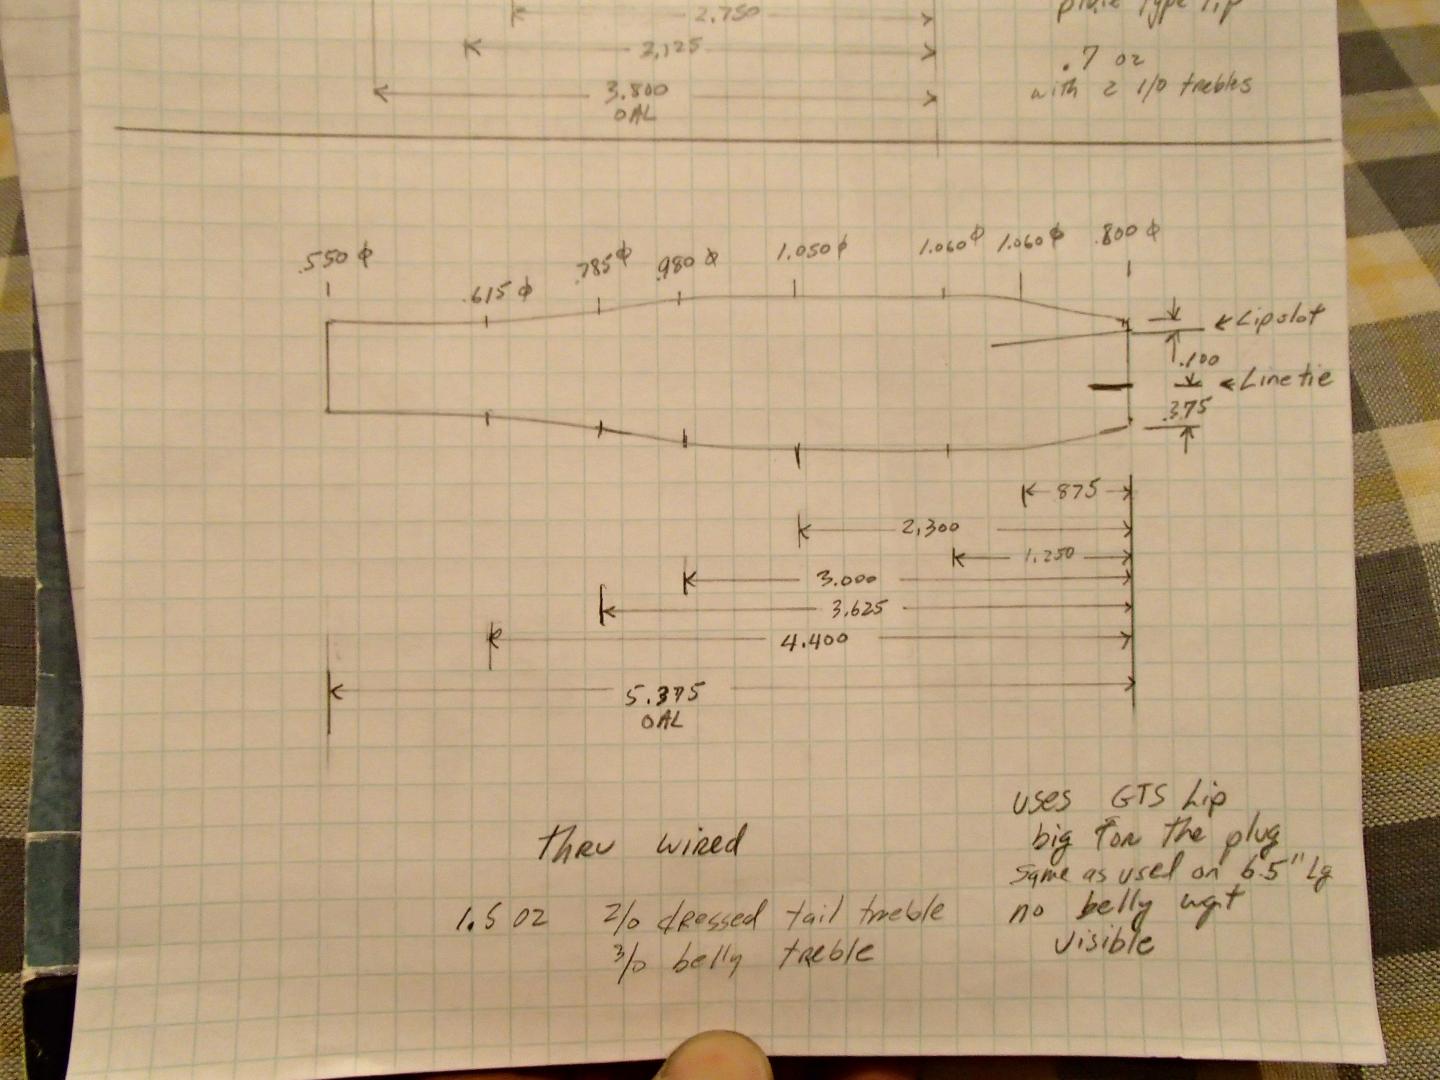 2.750
2,125
3.800
OAL
plate type lip
.7 oz
with 2 1/0 trebles
.550 ϕ
.615 ϕ
.785 ϕ
.980 ϕ
1.050 ϕ
1.060 ϕ
1.060 ϕ
.800 ϕ
Lip slot
.100
Line tie
.375
875
2,300
1.250
3.000
3.625
4.400
5.375
OAL
thru wired
1.5 oz 2/0 dressed tail treble
3/0 belly treble
uses GTS Lip
big for the plug
same as used on 6.5" Lg
no belly wgt
visible